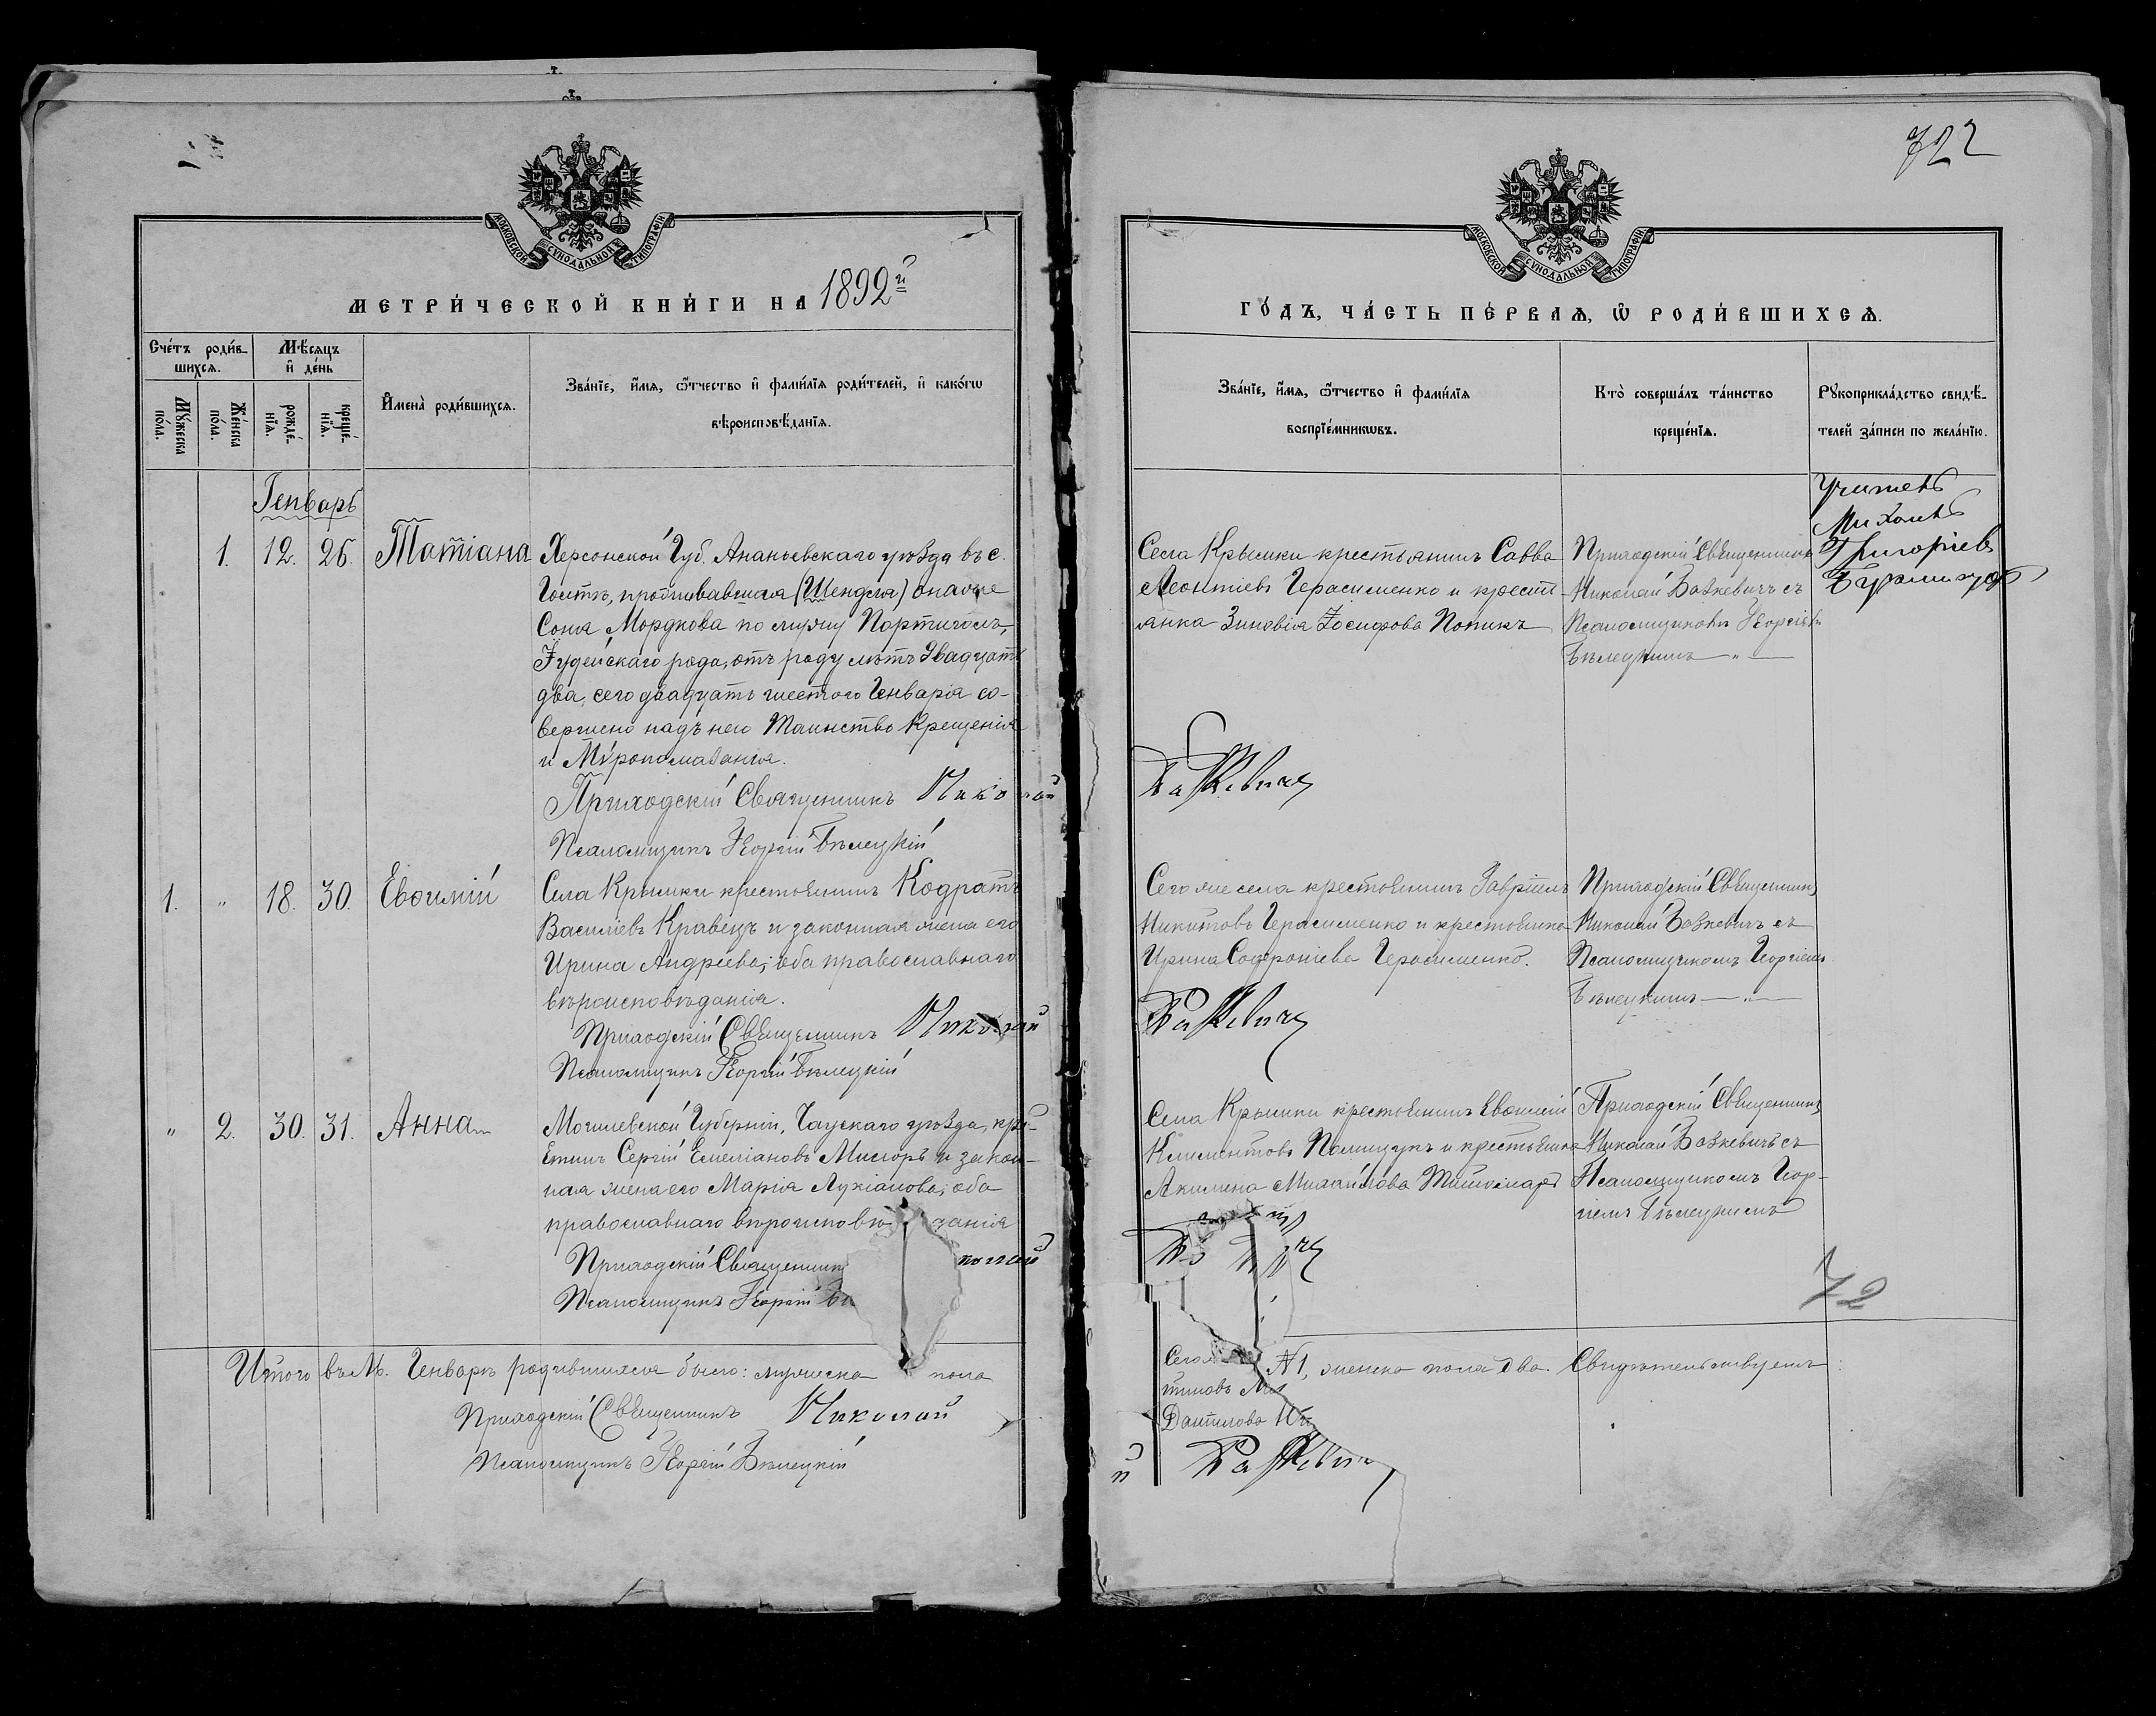 722
МОСКОВСКОЙ СУНОДАЛЬНОЙ ТИПОГРАФІИ
МЕТРИ́ЧЕСКОЙ КНИ́ГИ НА 1892й
Сче́тъ роди́в-
шихсѧ.
Мѣ́сяцъ
и҆ де́нь
Му́жеска
по́ла.
Же́нска
по́ла.
рожде́-
нїѧ.
креще́-
нїѧ.
И҆мена̀ роди́вшихсѧ.
Зва́нїе, и҆́мѧ, ѻ҆́тчество и҆ фами́лїѧ роди́телей, и҆ како́гѡ
вѣроисповѣ́данїѧ.
Генварь
1. 12. 26. Татіана
Херсонской Губ. Ананьевскаго уѣзда въ с.
проживавшая (Шендля) она же
Соня Мордкова по мужу
Іудейскаго рода, отъ роду лѣтъ двадцать
два, сего двадцать шестого Генваря со-
вершено надъ нею Таинство Крещенія
и Мѵропомазанія.
Приходскій Священникъ Николай
Псаломщикъ Георгій Бѣлецкій
1. " 18. 30. Евѳимій
Села Крымки крестьянинъ Кодратъ
Василіевъ Кравецъ и законная жена его
Ирина Андреева; оба православнаго
вѣроисповѣданія.
Приходскій Священникъ Николай
Псаломщикъ Георгій Бѣлецкій
" 2. 30. 31. Анна
Могилевской Губерніи, Чаускаго уѣзда, кре-
Сергій Емеліановъ и закон-
ная жена его Марія Лукіанова; оба
православнаго вѣроисповѣ данія
Приходскій Священник колай
Псаломщикъ Георгій Бѣ
Итого въ М. Генварѣ родившихся было: мужеска пола
Приходскій Священникъ Николай
Псаломщикъ Георгій Бѣлецкій
МОСКОВСКОЙ СУНОДАЛЬНОЙ ТИПОГРАФІИ
ГО́ДЪ, ЧА́СТЬ ПЕ́РВАѦ, Ѡ҆ РОДИ́ВШИХСѦ.
Зва́нїе, и҆́мѧ, ѻ҆́тчество и҆ фами́лїѧ
воспрїе́мникѡвъ.
Кто̀ соверша́лъ та́инство
креще́нїѧ.
Рꙋкоприкла́дство свидѣ́-
телей за́писи по жела́нїю.
Села Крымки крестьянинъ Савва
Леонтіевъ Герасименко и крестя-
янка Зиновія Іосифова Попикъ
Приходскій Священникъ
Николай Вазкевичъ съ
Псаломщикомъ Георгіемъ
Бѣлецкимъ — " —
Учитель
Михаилъ
Григоріевъ
Сего же села крестьянинъ Гавріилъ
Никитовъ Герасименко и крестьянка
Ирина Софроніева Герасименко.
Приходскій Священникъ
Николай Вазкевичъ съ
Псаломщикомъ Георгіемъ
Бѣлецкимъ — " —
Села Крымки крестьянинъ Евѳимій
Климентовъ Полищукъ и крестьянка
Акилина Михайлова
Приходскій Священникъ
Николай Вазкевичъ съ
Псаломщикомъ Геор-
гіемъ Бѣлецкимъ
72
Сего
№1, женска пола два. Свидѣтельствуемъ:
Даніилова
й